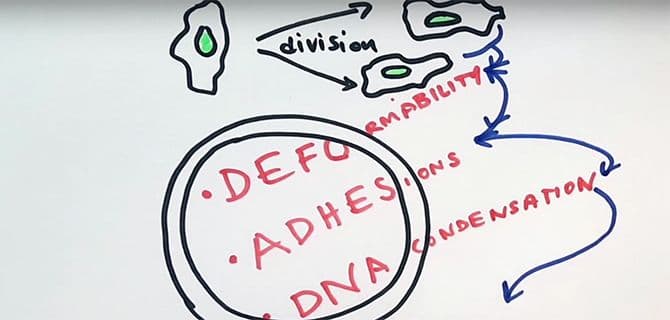 division
• DEFORMABILITY
• ADHESIONS
• DNA CONDENSATION